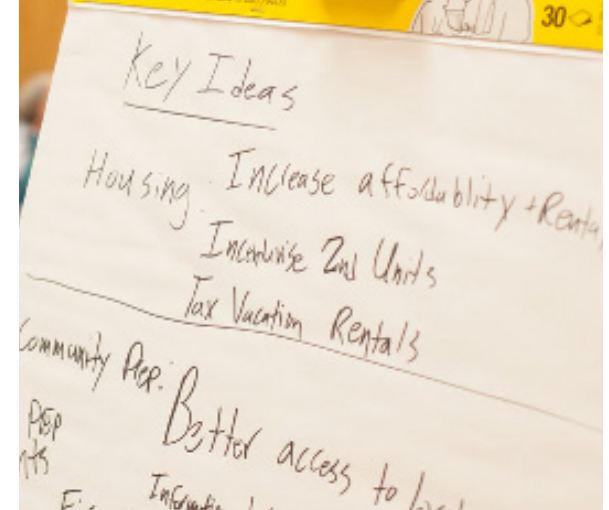 30
Key Ideas
Housing: Increase affordablity + Renta
Incentivise 2nd Units
Tax Vacation Rentals
Community Prep:
Better access to
Prep